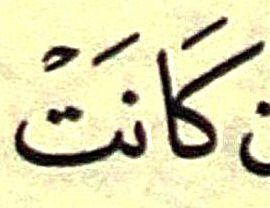 كَانَتْ